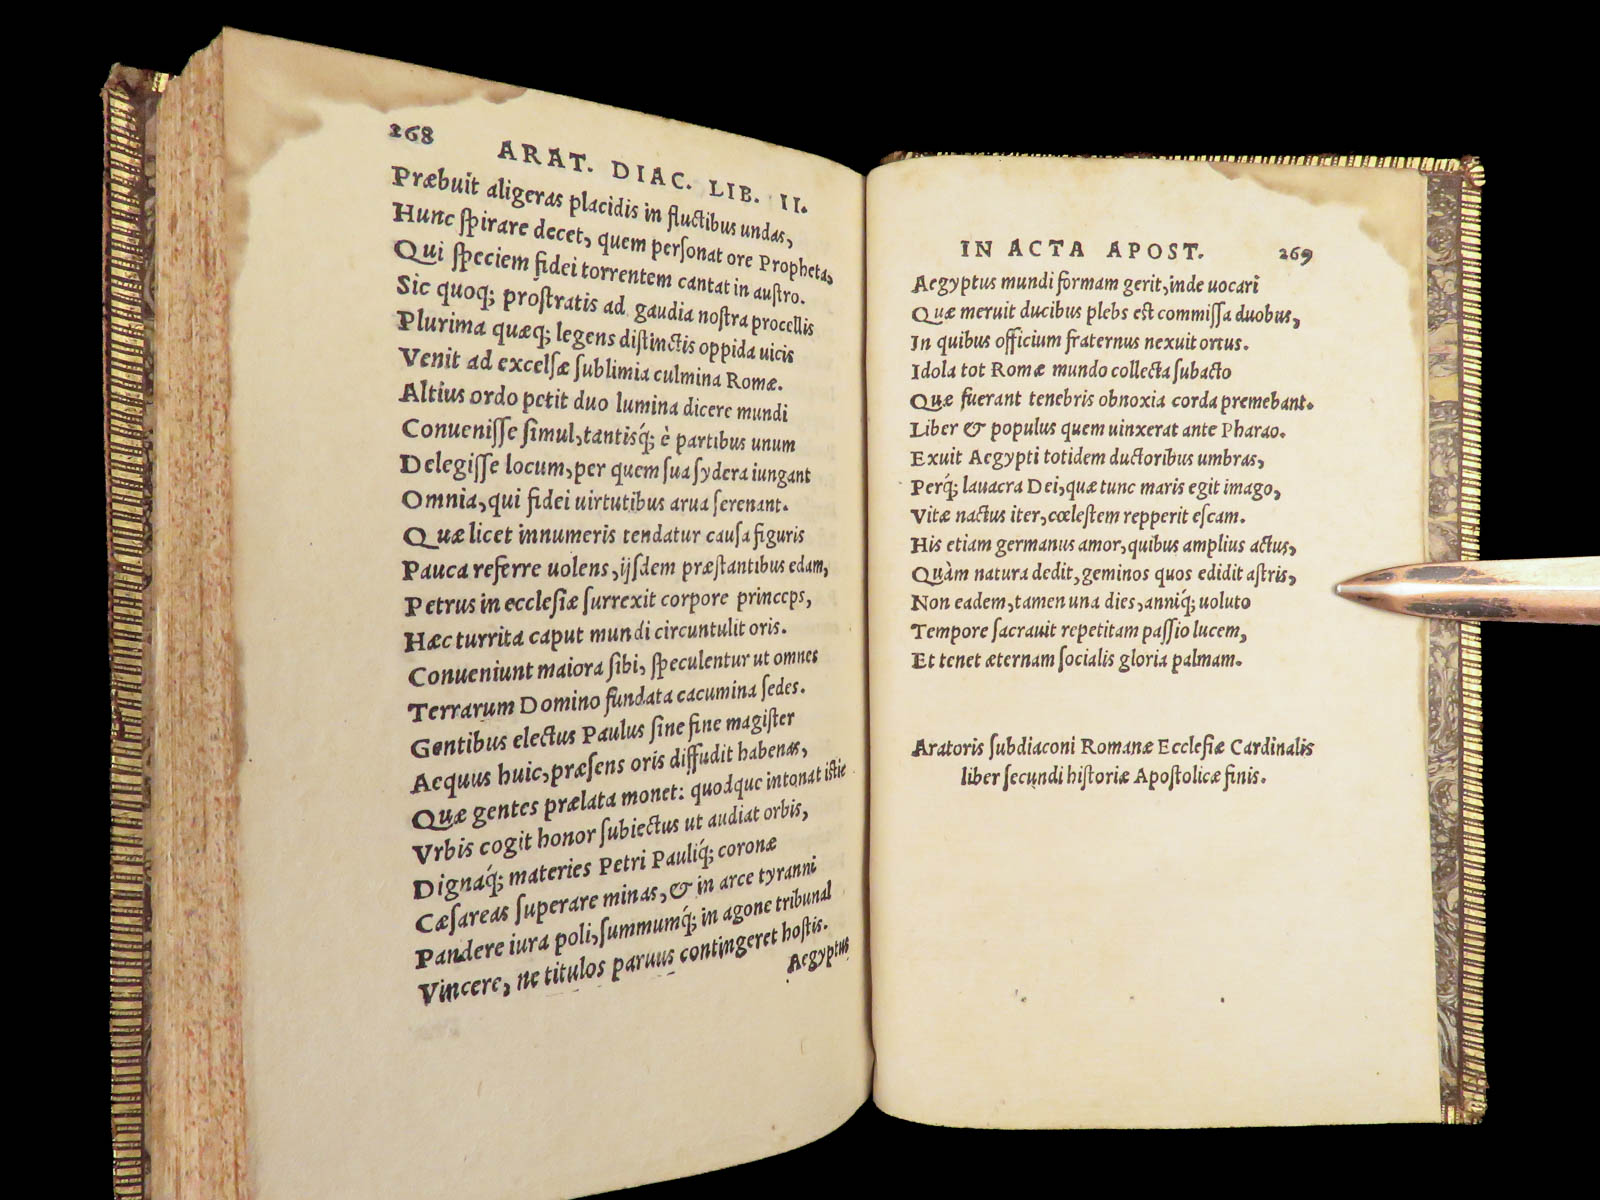 268
ARAT. DIAC. LIB. II.
Præbuit aligeras placidis in fluctibus undas,
Hunc ſpirare decet, quem perſonat ore Propheta,
Qui ſpeciem fidei torrentem cantat in auſtro.
Sic quoq; proſtratis ad gaudia noſtra procellis
Plurima quæq; legens diſtinctis oppida uicis
Venit ad excelſæ ſublimia culmina Romæ.
Altius ordo petit duo lumina dicere mundi
Conueniſſe ſimul, tantisq́; è partibus unum
Delegiſſe locum, per quem ſua ſydera iungant
Omnia, qui fidei uirtutibus arua ſerenant.
Quæ licet innumeris tendatur cauſa figuris
Pauca referre uolens, ijſdem præſtantibus edam,
Petrus in eccleſiæ ſurrexit corpore princeps,
Hæc turrita caput mundi circuntulit oris.
Conueniunt maiora ſibi, ſpeculentur ut omnes
Terrarum Domino fundata cacumina ſedes.
Gentibus electus Paulus ſine fine magiſter
Aequus huic, præſens oris diffudit habenas,
Quæ gentes prælata monet: quodque intonat iſtic
Vrbis cogit honor ſubiectus ut audiat orbis,
Dignáq́; materies Petri Pauliq́; coronæ
Cæſareas ſuperare minas, & in arce tyranni
Pandere iura poli, ſummumq́; in agone tribunal
Vincere, ne titulos paruus contingeret hoſtis.
Aegyptus
IN ACTA APOST. 269
Aegyptus mundi formam gerit, inde uocari
Quæ meruit ducibus plebs eſt commiſſa duobus,
In quibus officium fraternus nexuit ortus.
Idola tot Romæ mundo collecta ſubacto
Quæ fuerant tenebris obnoxia corda premebant.
Liber & populus quem uinxerat ante Pharao.
Exuit Aegypti totidem ductoribus umbras,
Perq́; lauacra Dei, quæ tunc maris egit imago,
Vitæ nactus iter, cœleſtem repperit eſcam.
His etiam germanus amor, quibus amplius actus,
Quàm natura dedit, geminos quos edidit aſtris,
Non eadem, tamen una dies, anniq́; uoluto
Tempore ſacrauit repetitam paſſio lucem,
Et tenet æternam ſocialis gloria palmam.
Aratoris ſubdiaconi Romanæ Eccleſiæ Cardinalis
liber ſecundi hiſtoriæ Apoſtolicæ finis.